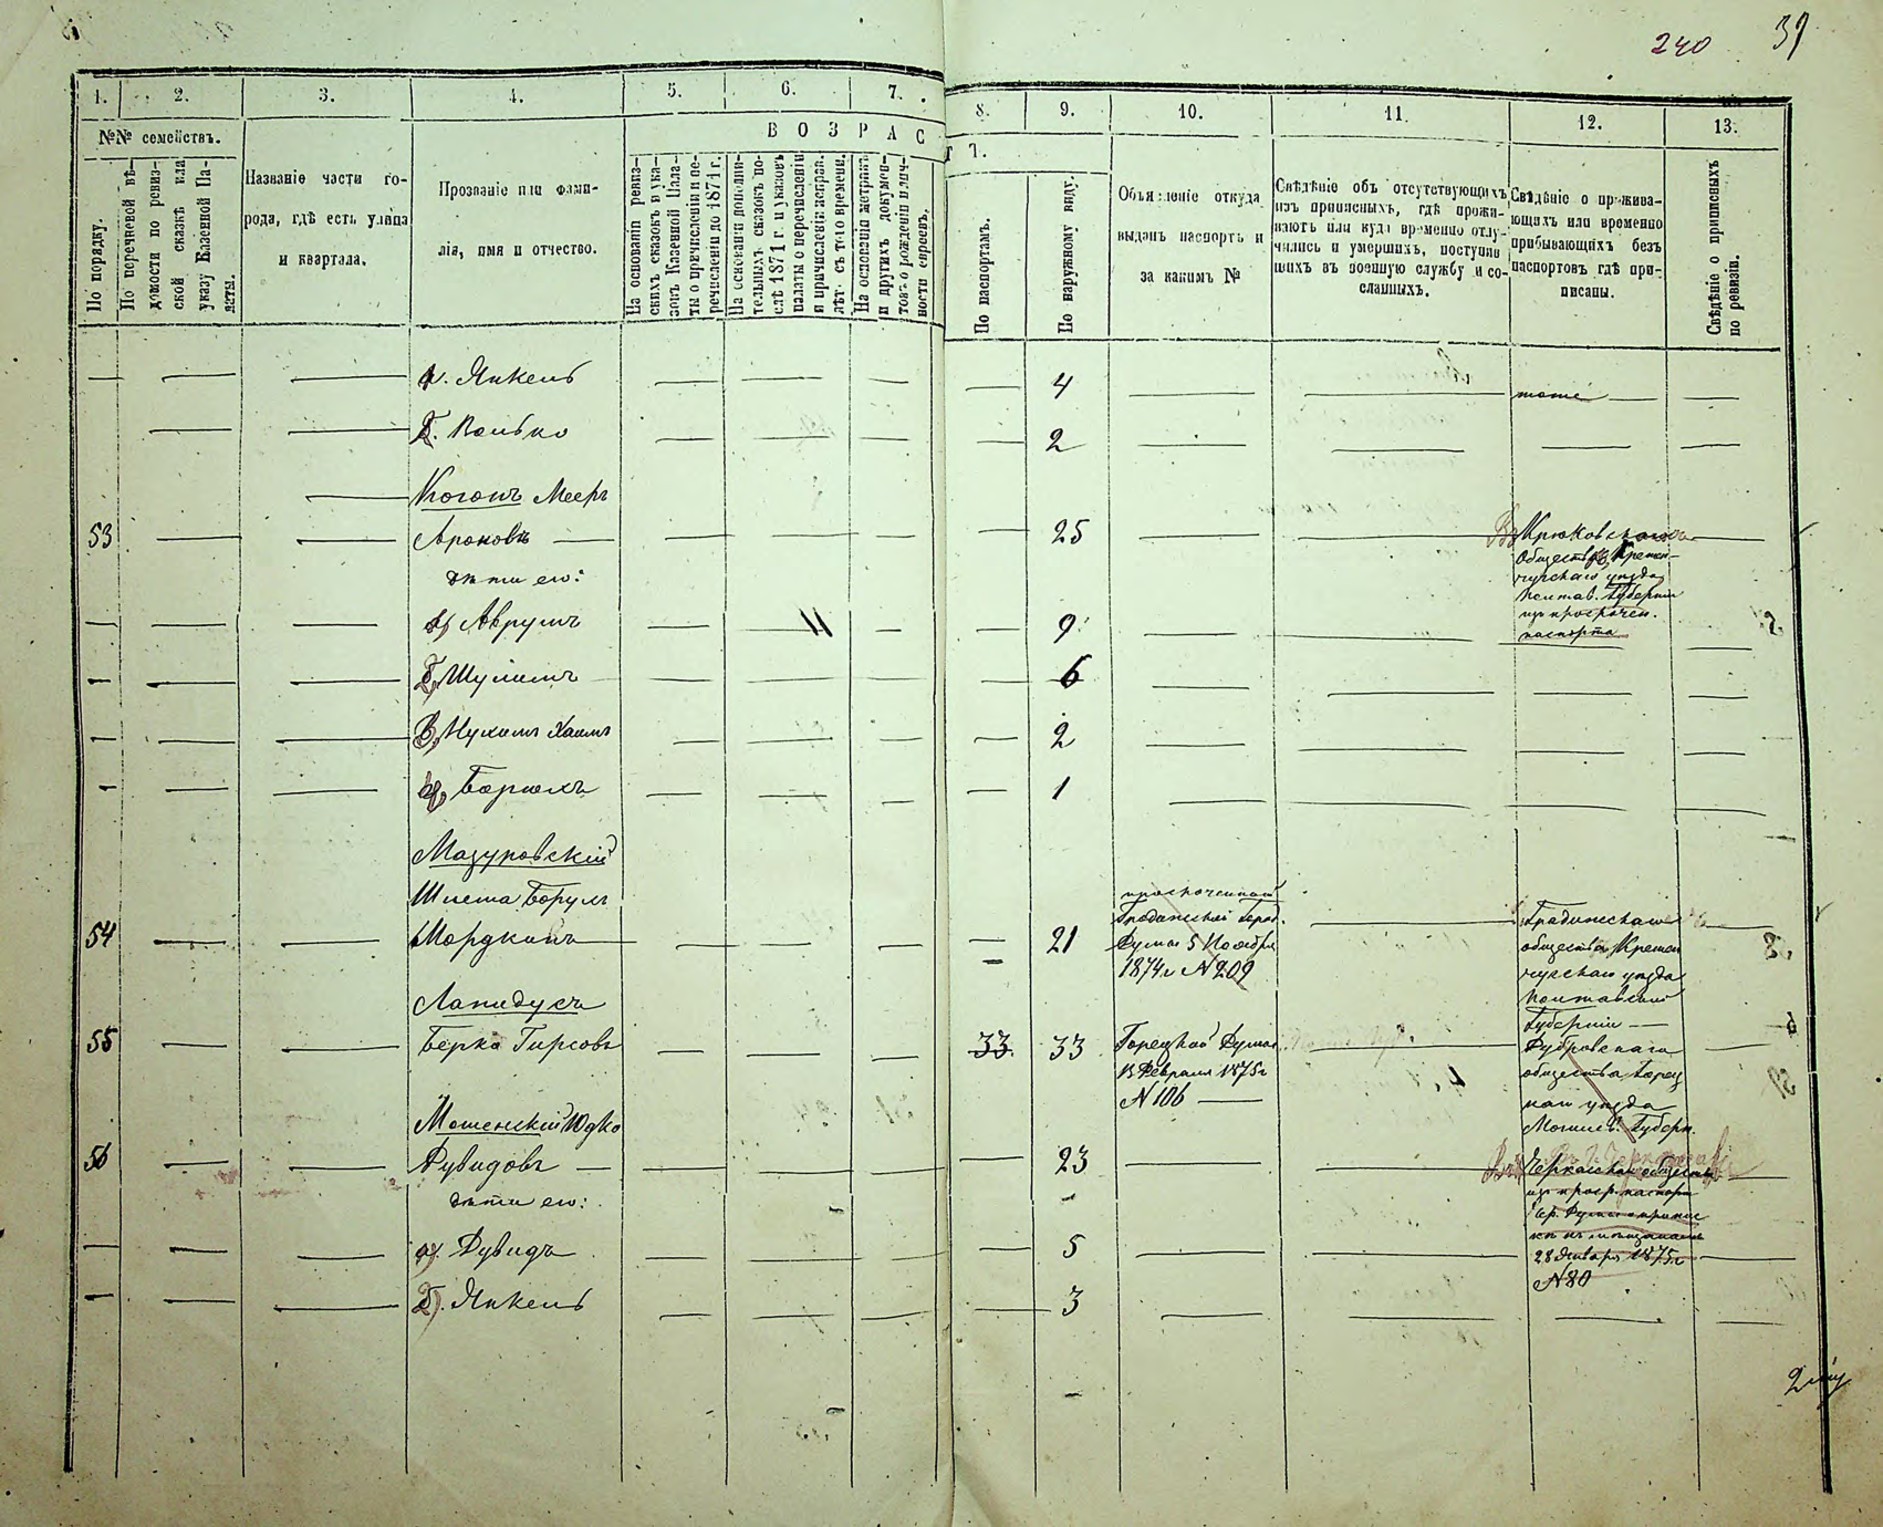 240 39
1. 2. 3. 4. 5. 6. 7. 8. 9. 10. 11. 12. 13.
№№ семействъ.
В О З Р А С Т Ъ.
По порядку.
По перечневой вѣ-
домости по ревиз-
ской сказкѣ или
указу Казенной Па-
латы.
Названіе части го-
рода, гдѣ есть улица
и квартала.
Прозваніе или фами-
лія, имя и отчество.
На основаніи ревиз-
скихъ сказокъ и ука-
зовъ Казенной Пала-
ты о причисленіи и пе-
речисленіи до 1871 г.
На основаніи дополни-
тельныхъ сказокъ по-
слѣ 1871 г. и указовъ
палаты о перечисленіи
и причисленіи
лѣтъ съ того времени.
На основаніи метрикъ
и другихъ докумен-
товъ о рожденіи и лич-
ности евреевъ.
По паспортамъ.
По наружному виду.
Объясненіе откуда
выданъ паспортъ и
за какимъ №
Свѣдѣніе объ отсутствующихъ
изъ приписныхъ, гдѣ прожи-
ваютъ или куда временно отлу-
чились и умершихъ, поступив-
шихъ въ военную службу и со-
сланныхъ.
Свѣдѣніе о прожива-
ющихъ или временно
прибывающихъ безъ
паспортовъ гдѣ при-
писаны.
Свѣдѣніе о приписныхъ
по ревизіи.
а. Янкель 4 тоже
б. Волько 2
Коганъ Мееръ
53 Ароновъ 25 Крюковскаго
Общества Кремен-
чугскаго уѣзда
Полтав. Губерніи
изъ просрочен.
паспорта
дѣти его:
а) Аврумъ 11 9
б) Шулимъ 6
в) Нухимъ Хаимъ 2
г) Борухъ 1
Мазуровскій
Шлема Борухъ
54 Мордкинъ 21
просроченный
Градижской Город.
Думы 5 Ноября
1874 г. № 209
Градижскаго
общества Кремен
чугскаго уѣзда
Полтавской
Губерніи
Лапидусъ
55 Берка Гирсовъ 33 33
Горецкой Думы
13 Февраля 1875 г.
№ 106
Дубровскаго
общества Горец
каго уѣзда
Могилев. Губерн.
Мошенскій Юдко
56 Рувидовъ 23
дѣти его:
Черкасскаго общества
изъ проср. паспорта
28 Января 1875 г.
№ 80
а) Рувидъ 5
б). Янкель 3